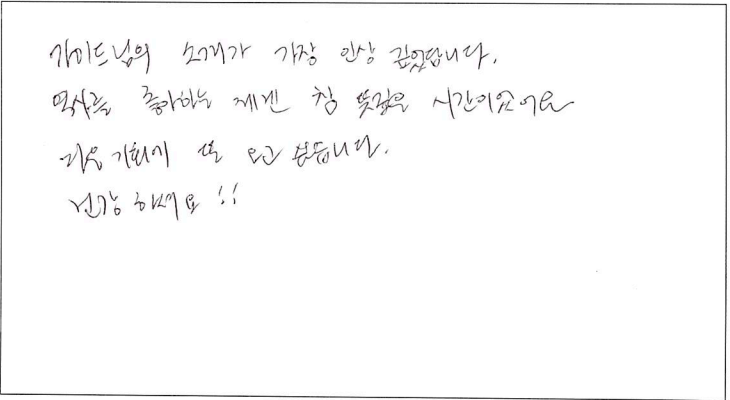 가이드님의 소개가 가장 인상 깊었답니다.
역사를 좋아하는 제겐 참 뜻깊은 시간이었어요
다음 기회에 또 오고 싶습니다.
건강하세요!!